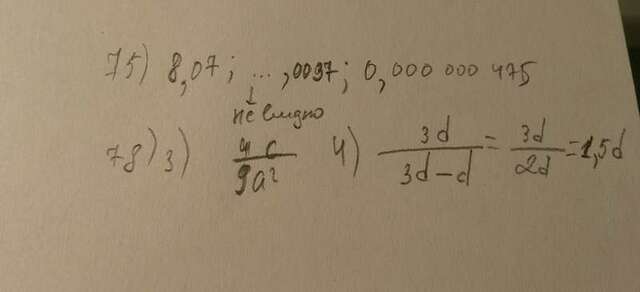 75) 8,07; ...,0097; 0,000 000 475
↓
не видно
78) 3) 4c/9a² 4) 3d/(3d-d) = 3d/2d = 1,5d